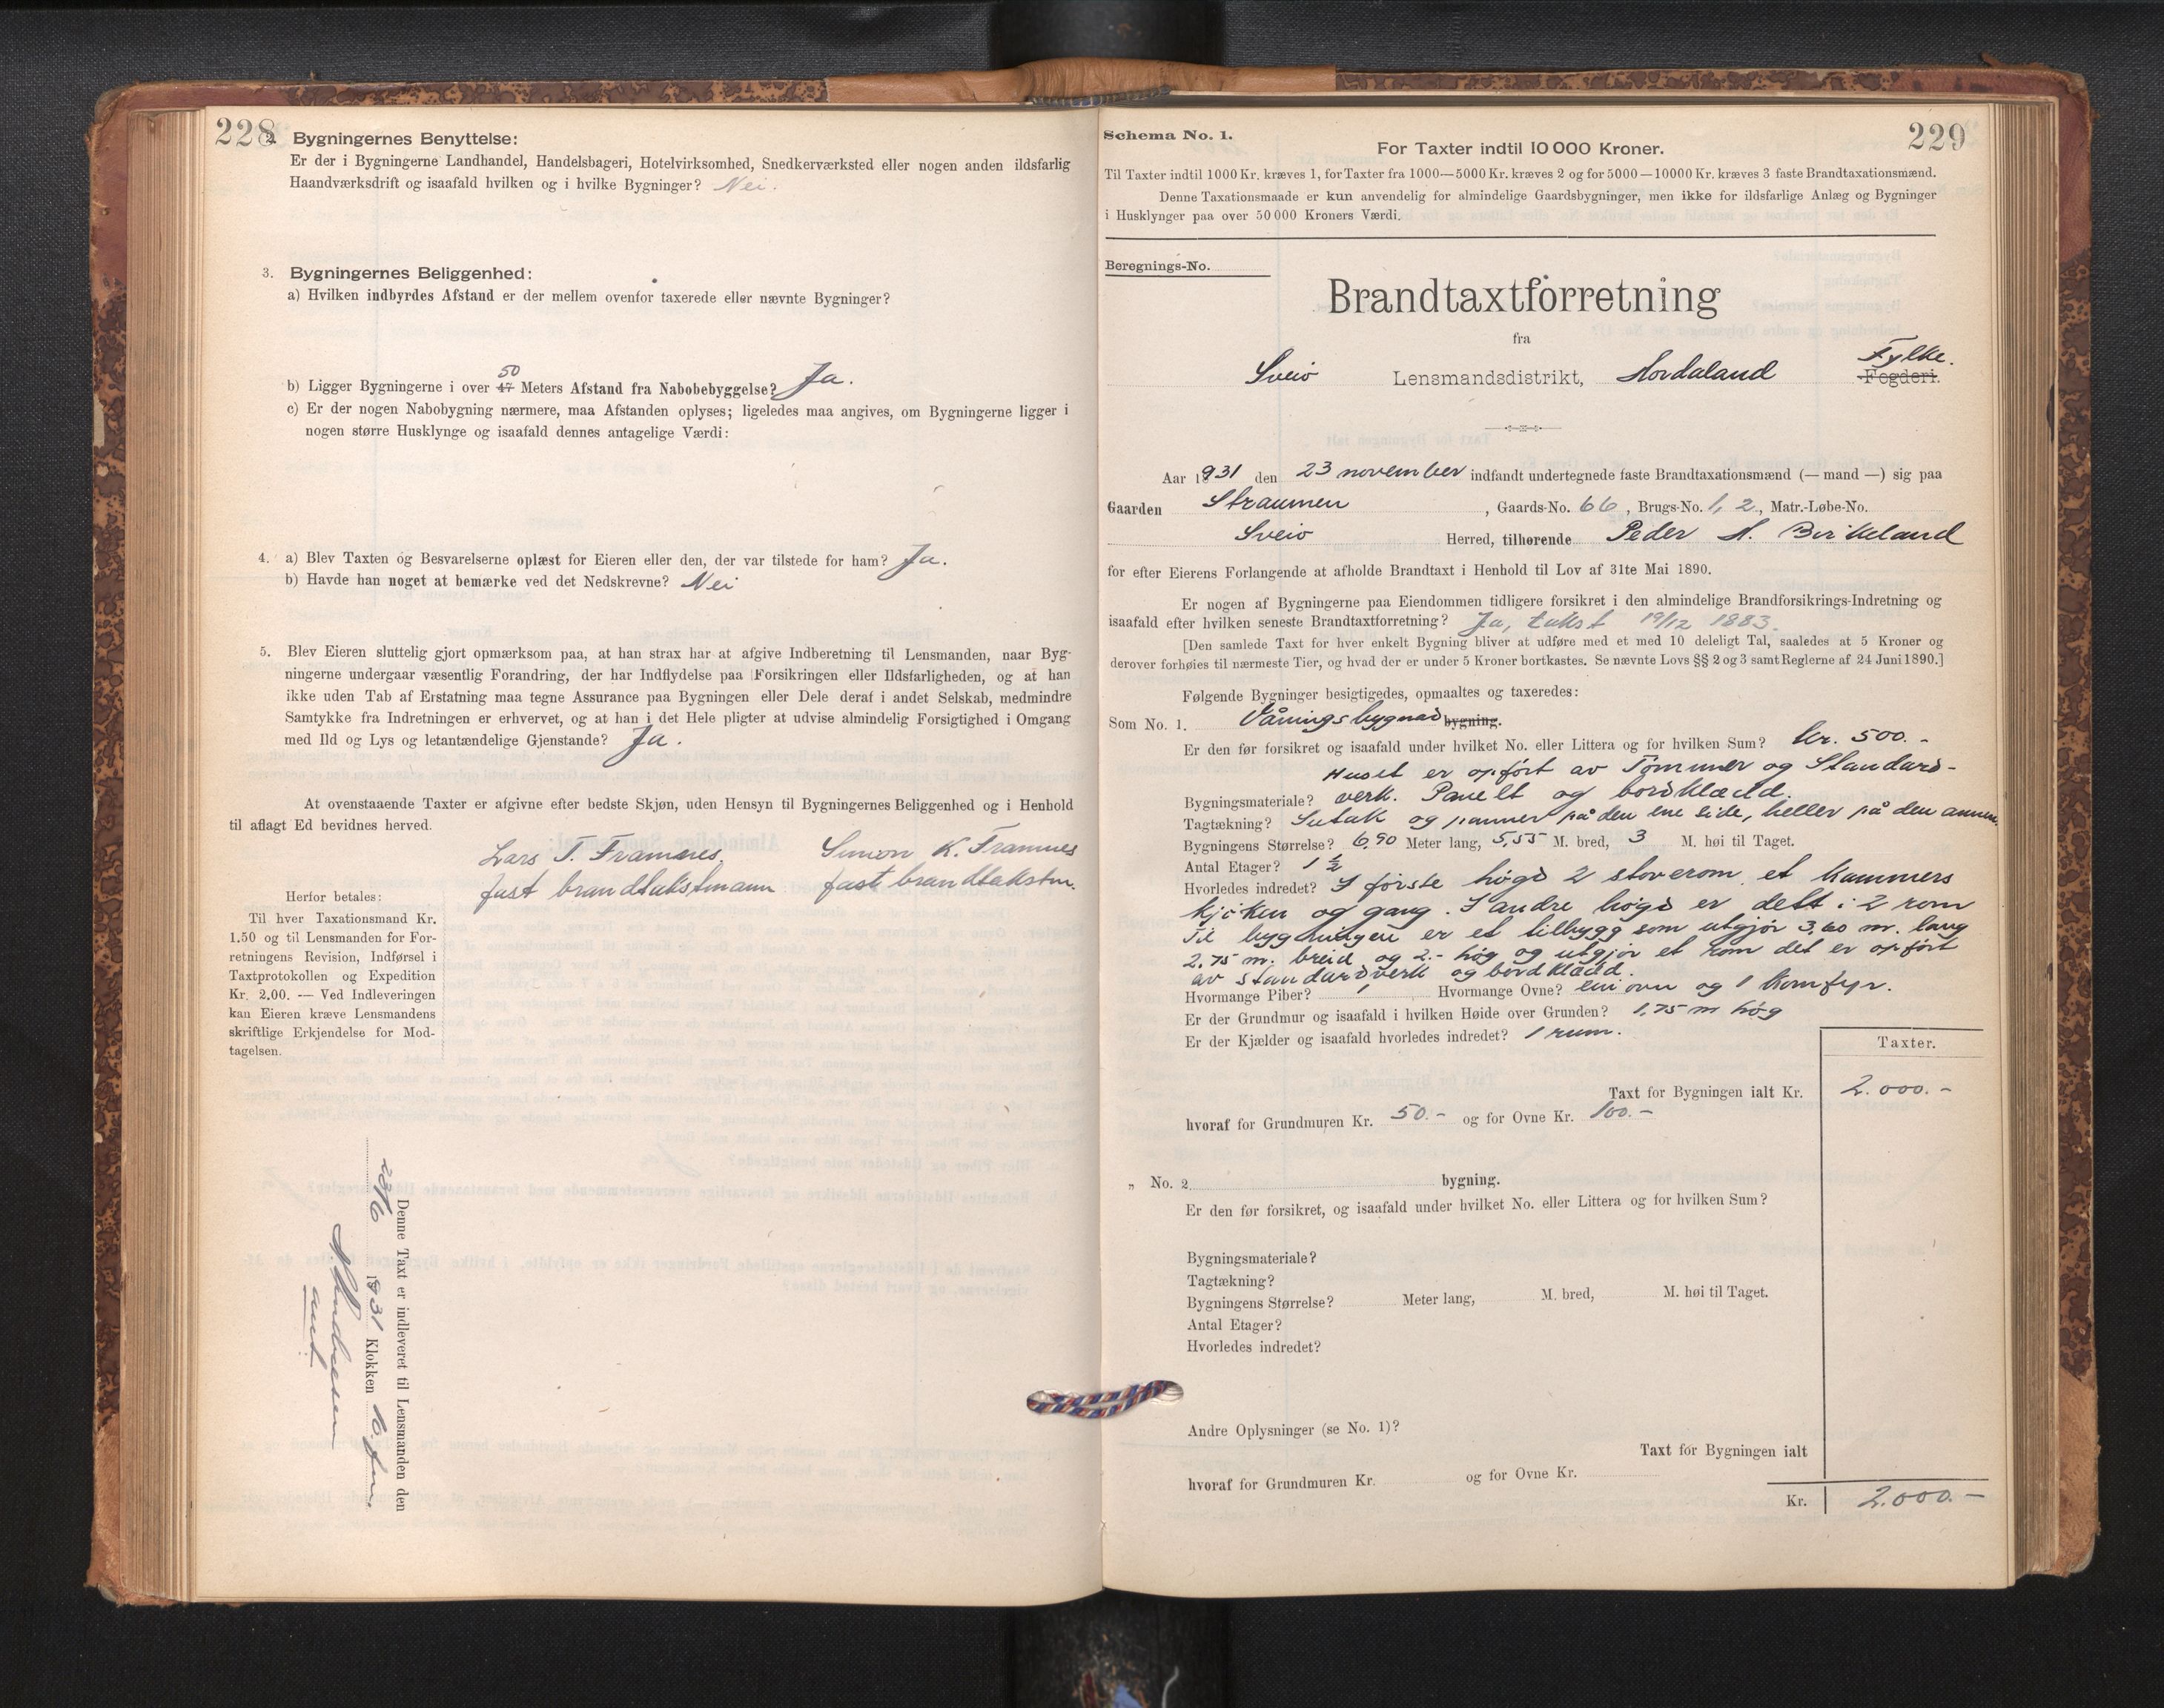 228
2. Bygningernes Benyttelse:
Er der i Bygningerne Landhandel, Handelsbageri, Hotelvirksomhed, Snedkerværksted eller nogen anden ildsfarlig
Haandværksdrift og isaafald hvilken og i hvilke Bygninger? Nei.
3. Bygningernes Beliggenhed:
a) Hvilken indbyrdes Afstand er der mellem ovenfor taxerede eller nævnte Bygninger?
50
b) Ligger Bygningerne i over 47 Meters Afstand fra Nabobebyggelse? Ja.
c) Er der nogen Nabobygning nærmere, maa Afstanden oplyses; ligeledes maa angives, om Bygningerne ligger i
nogen større Husklynge og isaafald dennes antagelige Værdi:
4. a) Blev Taxten og Besvarelserne oplæst for Eieren eller den, der var tilstede for ham? Ja.
b) Havde han noget at bemærke ved det Nedskrevne? Nei
5. Blev Eieren sluttelig gjort opmærksom paa, at han strax har at afgive Indberetning til Lensmanden, naar Byg-
ningerne undergaar væsentlig Forandring, der har Indflydelse paa Forsikringen eller Ildsfarligheden, og at han
ikke uden Tab af Erstatning maa tegne Assurance paa Bygningen eller Dele deraf i andet Selskab, medmindre
Samtykke fra Indretningen er erhvervet, og at han i det Hele pligter at udvise almindelig Forsigtighed i Omgang
med Ild og Lys og letantændelige Gjenstande? Ja.
At ovenstaaende Taxter er afgivne efter bedste Skjøn, uden Hensyn til Bygningernes Beliggenhed og i Henhold
til aflagt Ed bevidnes herved.
Lars T. Framnes. Simon K. Framnes
fast brandtakstmann fast brandtakstm.
Herfor betales:
Til hver Taxationsmand Kr.
1.50 og til Lensmanden for For-
retningens Revision, Indførsel i
Taxtprotokollen og Expedition
Kr. 2.00. — Ved Indleveringen
kan Eieren kræve Lensmandens
skriftlige Erkjendelse for Mod-
tagelsen.
Denne Taxt er indleveret til Lensmanden den
1931 Klokken 10 fm.
229
Schema No. 1.
For Taxter indtil 10 000 Kroner.
Til Taxter indtil 1000 Kr. kræves 1, for Taxter fra 1000—5000 Kr. kræves 2 og for 5000—10000 Kr. kræves 3 faste Brandtaxationsmænd.
Denne Taxationsmaade er kun anvendelig for almindelige Gaardsbygninger, men ikke for ildsfarlige Anlæg og Bygninger
i Husklynger paa over 50 000 Kroners Værdi.
Beregnings-No.
Brandtaxtforretning
fra
Sveio Lensmandsdistrikt, Hordaland Fylke. Fogderi.
Aar 1931 den 23 november indfandt undertegnede faste Brandtaxationsmænd (— mand —) sig paa
Gaarden Straumen, Gaards-No. 66, Brugs-No. 1, 2, Matr.-Løbe-No.
Sveio Herred, tilhørende Peder A. Birkeland
for efter Eierens Forlangende at afholde Brandtaxt i Henhold til Lov af 31te Mai 1890.
Er nogen af Bygningerne paa Eiendommen tidligere forsikret i den almindelige Brandforsikrings-Indretning og
isaafald efter hvilken seneste Brandtaxtforretning? Ja, takst 19/12 1883.
[Den samlede Taxt for hver enkelt Bygning bliver at udføre med et med 10 deleligt Tal, saaledes at 5 Kroner og
derover forhøies til nærmeste Tier, og hvad der er under 5 Kroner bortkastes. Se nævnte Lovs §§ 2 og 3 samt Reglerne af 24 Juni 1890.]
Følgende Bygninger besigtigedes, opmaaltes og taxeredes:
Som No. 1. Våningsbygnad bygning.
Er den før forsikret og isaafald under hvilket No. eller Littera og for hvilken Sum? kr. 500.-
Huset er opført av Tømmer og Standard-
Bygningsmateriale? verk. Panelt og bordklædd.
Tagtækning? Sutak og panner på den ene side, heller på den annen.
Bygningens Størrelse? 6,90 Meter lang, 5,55 M. bred, 3 M. høi til Taget.
Antal Etager? 1 ½
Hvorledes indredet? I første høgd 2 stoverom, et kammers
kjøken og gang. I andre høgd er delt i 2 rom
Til bygningen er et tilbygg som utgjør 3,60 m. lang
2,75 m. breid og 2.- høg og utgjør et rom det er opført
av standardverk og bordklædd.
Hvormange Piber? 1 Hvormange Ovne? ein ovn og 1 komfyr.
Er der Grundmur og isaafald i hvilken Høide over Grunden? 1,75 m høg
Er der Kjælder og isaafald hvorledes indredet? 1 rum.
Taxter.
Taxt for Bygningen ialt Kr. 2.000.-
hvoraf for Grundmuren Kr. 50.- og for Ovne Kr. 100.-
„ No. 2 bygning.
Er den før forsikret, og isaafald under hvilket No. eller Littera og for hvilken Sum?
Bygningsmateriale?
Tagtækning?
Bygningens Størrelse? Meter lang, M. bred, M. høi til Taget.
Antal Etager?
Hvorledes indredet?
Andre Oplysninger (se No. 1)?
Taxt for Bygningen ialt
hvoraf for Grundmuren Kr. og for Ovne Kr.
Kr. 2.000.-